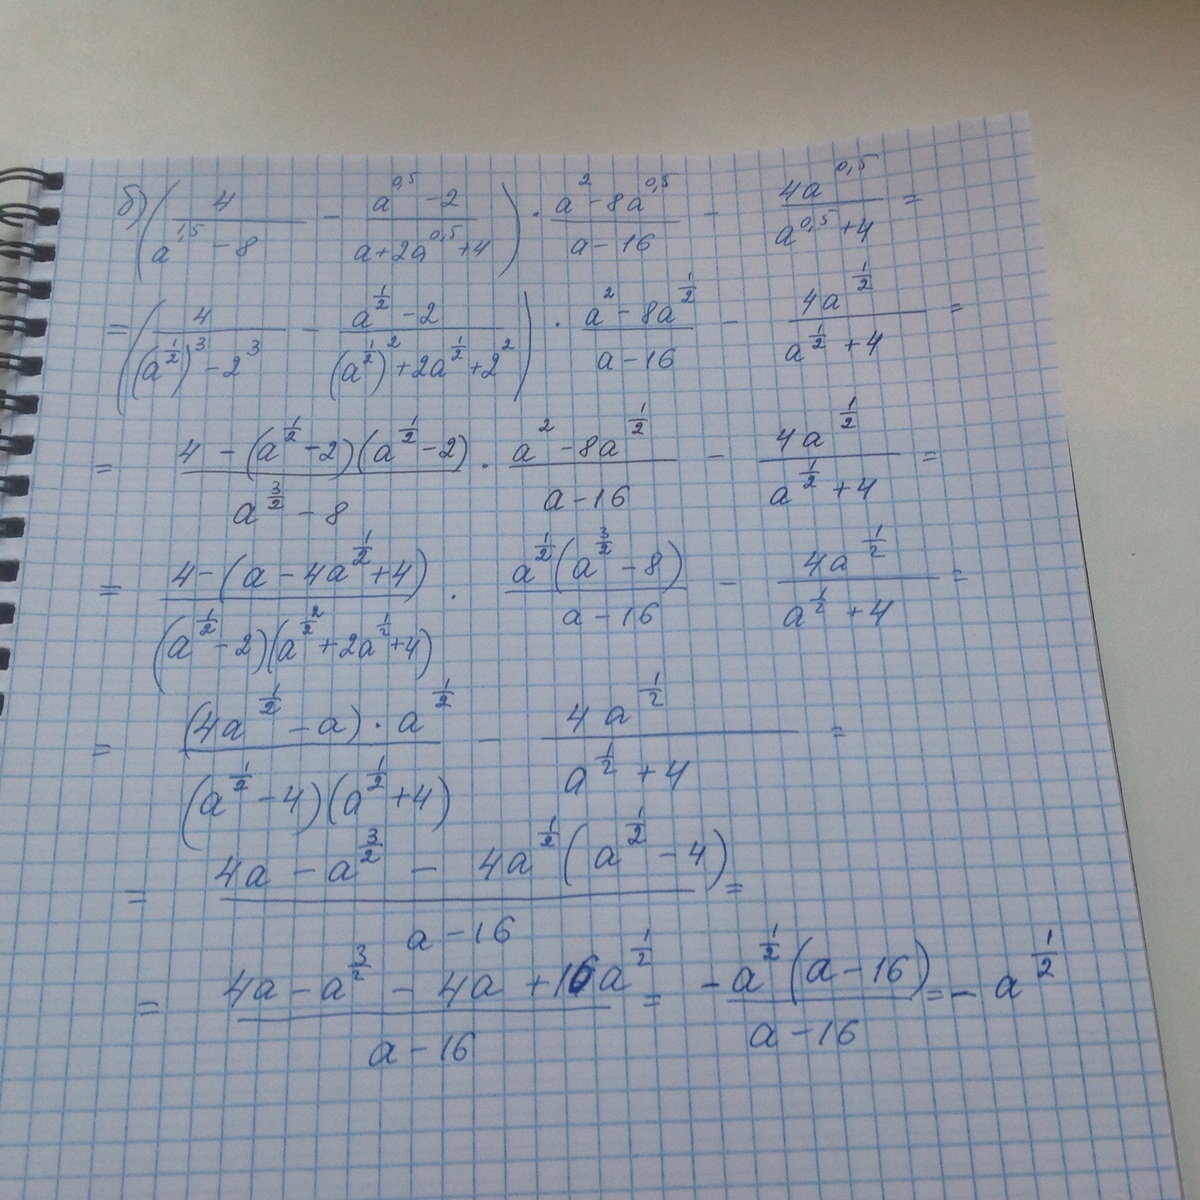 б) (4/(a^1,5 - 8) - (a^0,5 - 2)/(a + 2a^0,5 + 4)) · (a^2 - 8a^0,5)/(a - 16) - 4a^0,5/(a^0,5 + 4) =
= (4/((a^1/2)^3 - 2^3) - (a^1/2 - 2)/((a^1/2)^2 + 2a^1/2 + 2^2)) · (a^2 - 8a^1/2)/(a - 16) - 4a^1/2/(a^1/2 + 4) =
= (4 - (a^1/2 - 2)(a^1/2 - 2))/(a^3/2 - 8) · (a^2 - 8a^1/2)/(a - 16) - 4a^1/2/(a^1/2 + 4) =
= (4 - (a - 4a^1/2 + 4))/((a^1/2 - 2)(a^2/2 + 2a^1/2 + 4)) · a^1/2(a^3/2 - 8)/(a - 16) - 4a^1/2/(a^1/2 + 4) =
= ((4a^1/2 - a) · a^1/2)/((a^1/2 - 4)(a^1/2 + 4)) - 4a^1/2/(a^1/2 + 4) =
= (4a - a^3/2 - 4a^1/2(a^1/2 - 4))/(a - 16) =
= (4a - a^3/2 - 4a + 16a^1/2)/(a - 16) = -a^1/2(a - 16)/(a - 16) = - a^1/2